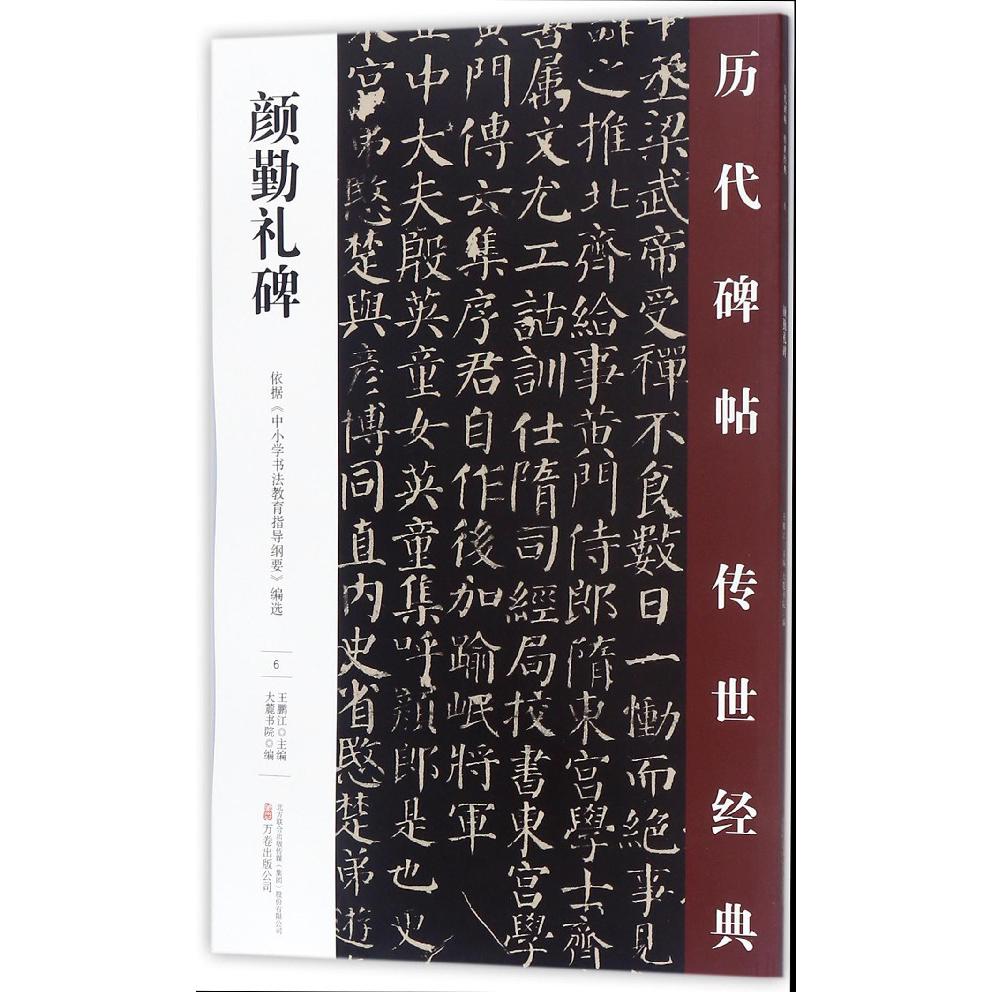 历代碑帖 传世经典
丞梁武帝受禪不食數日一慟而絶事見
之推北齊給事黄門侍郎隋東宮學士齊
善属文尤工詁訓仕隋司經局校書東宮學
黄門傳云集序君自作後加踰岷將軍
正中大夫殷英童女英童集呼顔郎是也史
宮弟愍楚與彦博同直内史省愍楚弟遊
颜勤礼碑
依据《中小学书法教育指导纲要》编选
6
王鹏江◎主编
大麓书院◎编
北方联合出版传媒（集团）股份有限公司
万卷出版公司
颜勤礼碑